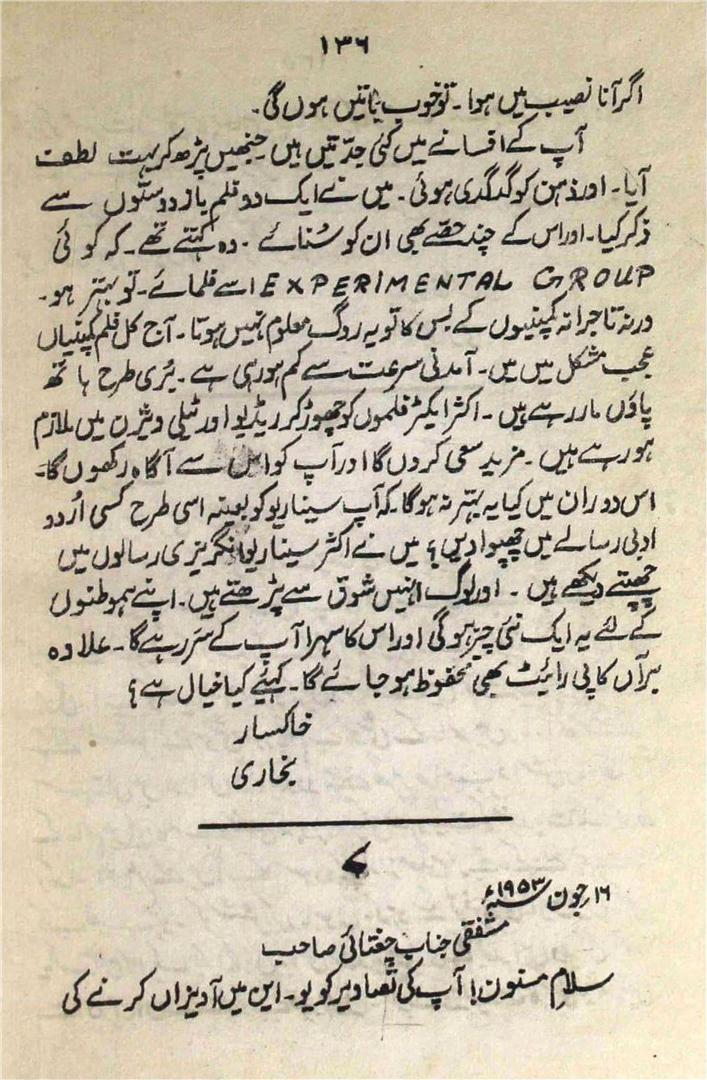 ۱۳۶
اگر آنا نصیب میں ہوا۔ تو خوب باتیں ہوں گی۔
آپ کے افسانے میں کئی جدّتیں ہیں۔ جنھیں پڑھ کر بہت لطف
آیا۔ اور ذہن کو گدگدی ہوئی۔ میں نے ایک دو قلم باز دوستوں سے
ذکر کیا۔ اور اس کے چند حصّے بھی ان کو سُنائے۔ وہ کہتے تھے۔ کہ کوئی
EXPERIMENTAL GROUP اسے فلمائے۔ تو بہتر ہو۔
ورنہ تاجرانہ کمپنیوں کے بس کا تو یہ روگ معلوم نہیں ہوتا۔ آج کل فلم کمپنیاں
عجب مشکل میں ہیں۔ آمدنی سرعت سے کم ہو رہی ہے۔ بُری طرح ہاتھ
پاؤں مار رہے ہیں۔ اکثر ایکٹر فلموں کو چھوڑ کر ریڈیو اور ٹیلی ویژن میں ملازم
ہو رہے ہیں۔ مزید سعی کروں گا اور آپ کو اس سے آگاہ رکھوں گا۔
اس دوران میں کیا یہ بہتر نہ ہوگا۔ کہ آپ سیناریو کو بعینہٖ اسی طرح کسی اُردو
ادبی رسالے میں چھپوا دیں؟ میں نے اکثر سیناریو انگریزی رسالوں میں
چھپتے دیکھے ہیں۔ اور لوگ انہیں شوق سے پڑھتے ہیں۔ اپنے ہموطنوں
کے لئے یہ ایک نئی چیز ہوگی اور اس کا سہرا آپ کے سَر رہے گا۔ علاوہ
برآں کاپی رائیٹ بھی محفوظ ہو جائے گا۔ کہئیے کیا خیال ہے؟
خاکسار
بخاری
۱۶ جون سنہ ۱۹۵۳ء
مشفقی جناب چغتائی صاحب
سلامِ مسنون! آپ کی تصاویر کو یو۔ این میں آویزاں کرنے کی